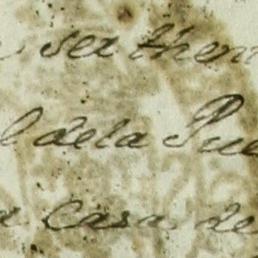 ser then
l dela Pue
a casa de